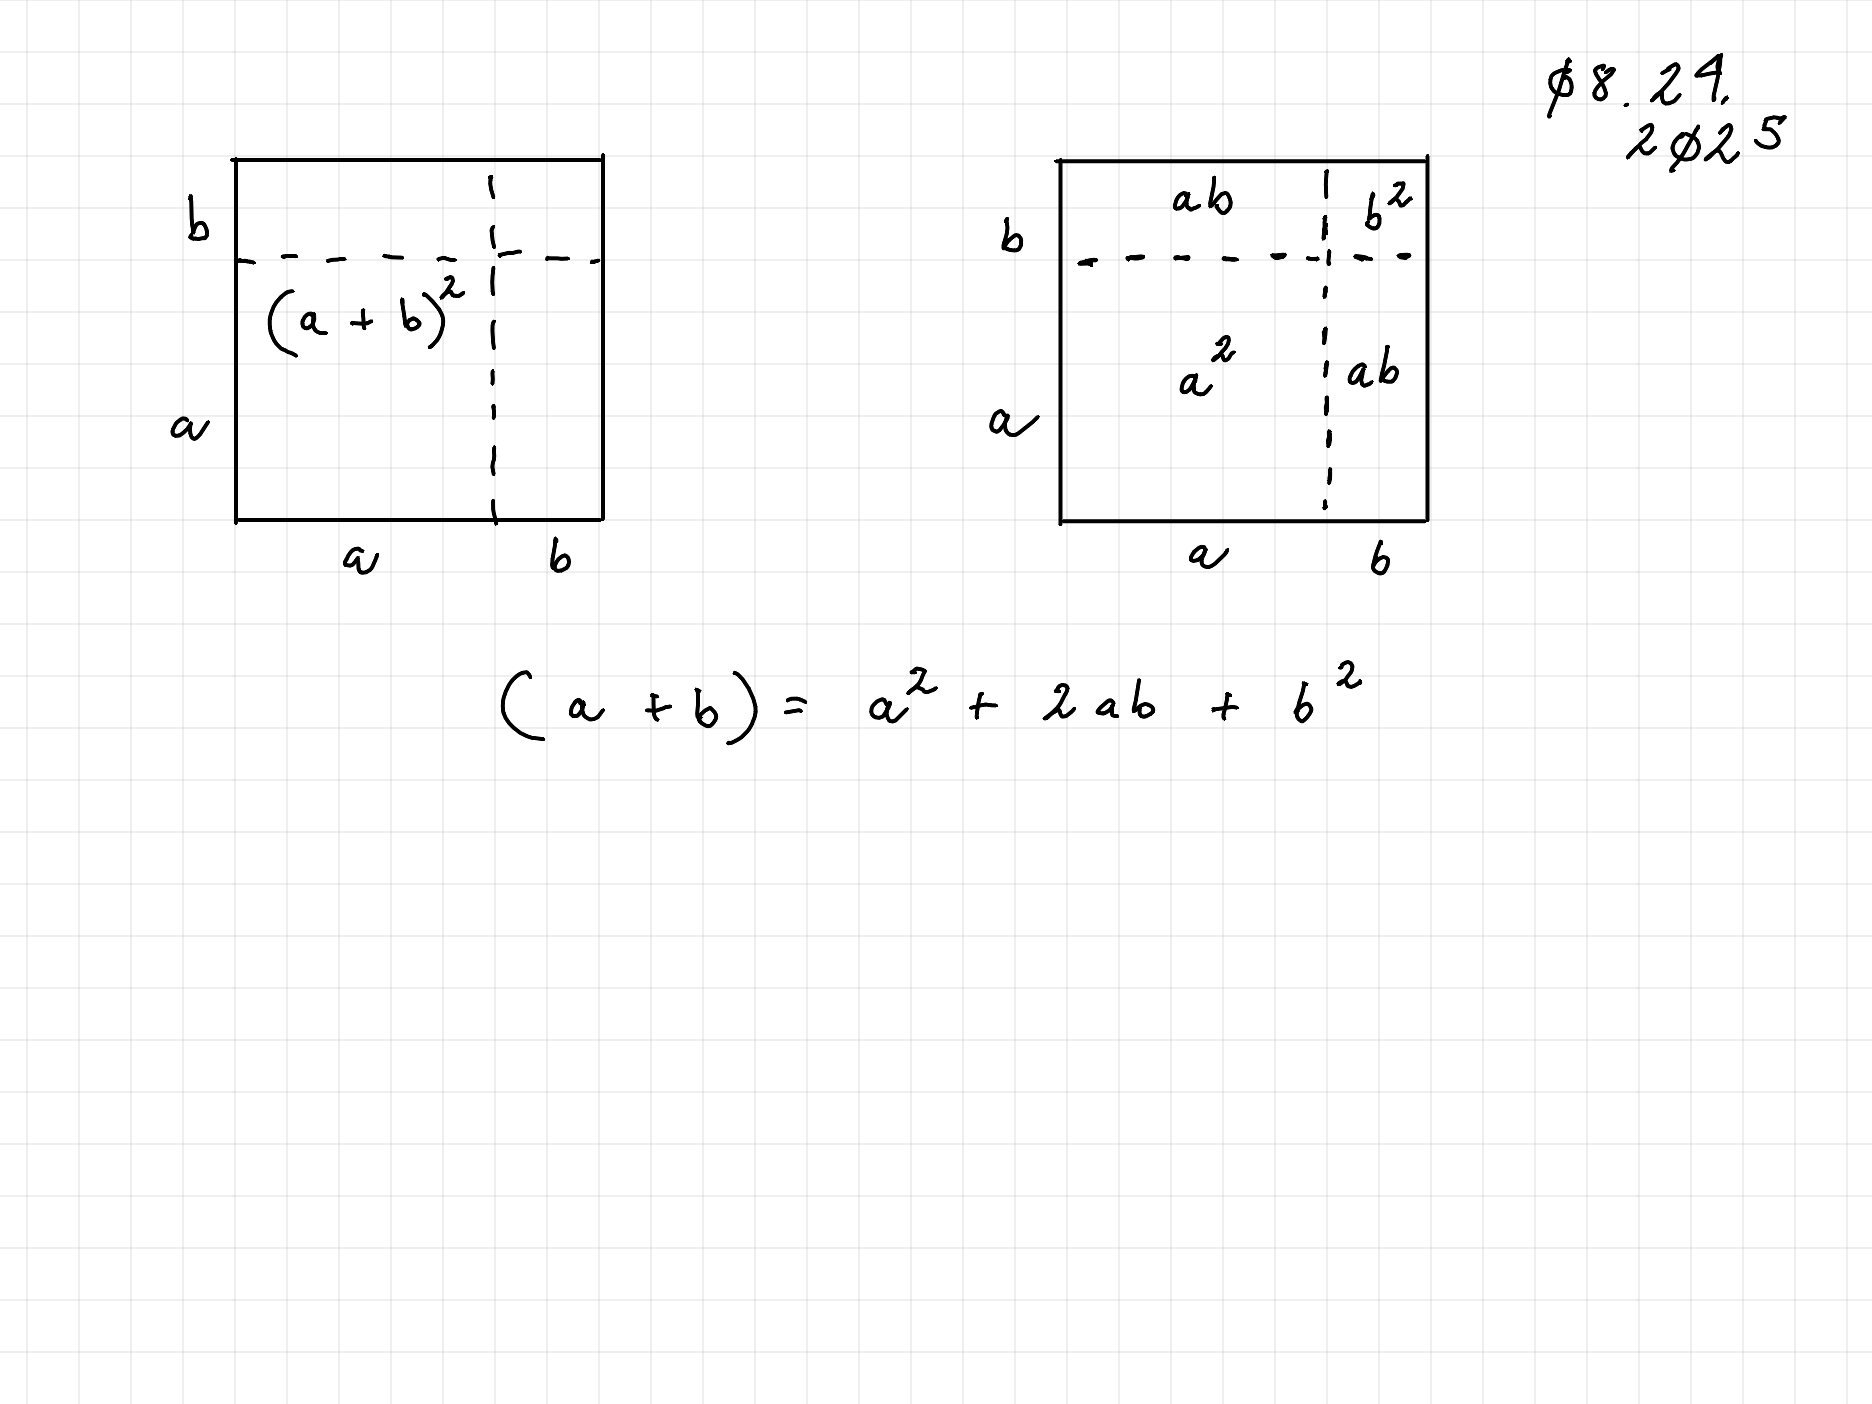 Ø8.24.
2Ø25
b
(a + b)²
a
a b
ab b²
b
a² ab
a
a b
(a + b) = a² + 2ab + b²